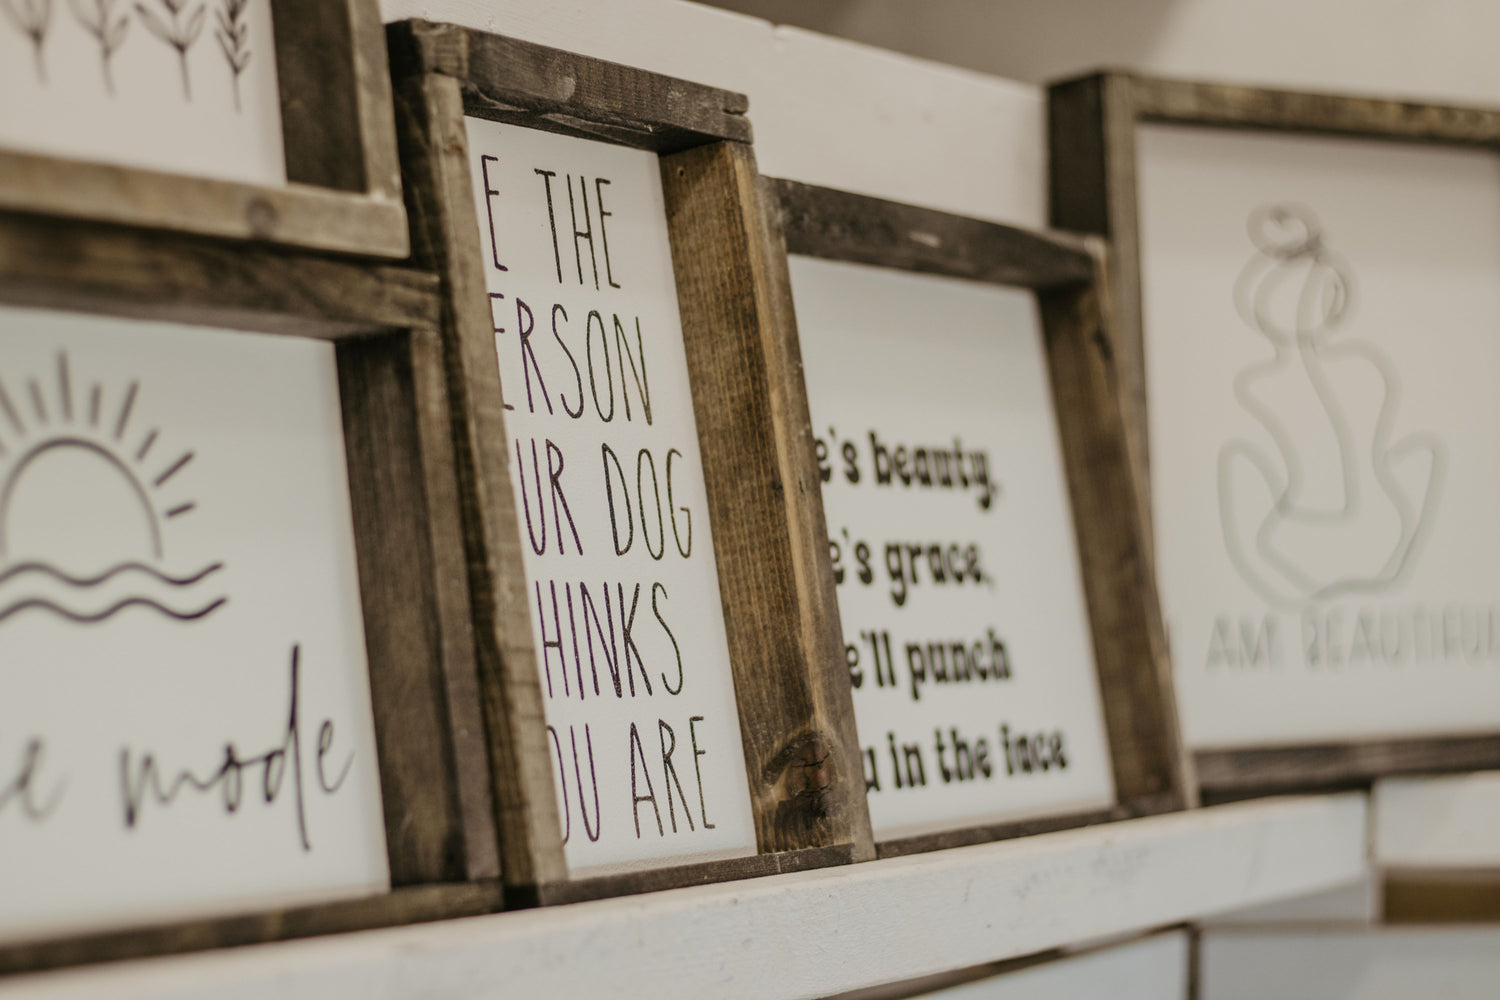 e mode
E THE
ERSON
UR DOG
HINKS
OU ARE
e's beauty,
e's grace,
e'll punch
u in the face
I AM BEAUTIFUL